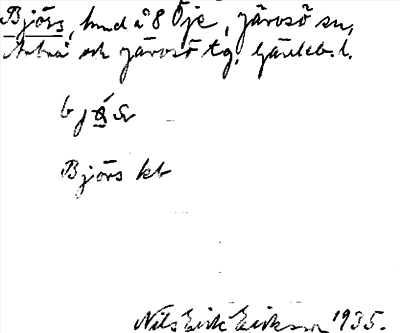 Bjõrs, hmd å 8 Öje, Järvsö sn,
Arbrå och Järvsö tg, Gävleb. l.
bjö̀s̄
Björs kt
Nils Erik Eriksson 1935.